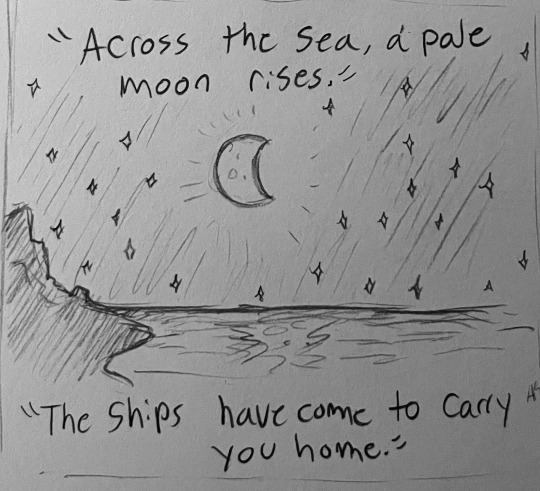 "Across the sea, a pale
moon rises."
"The Ships have come to carry
you home."